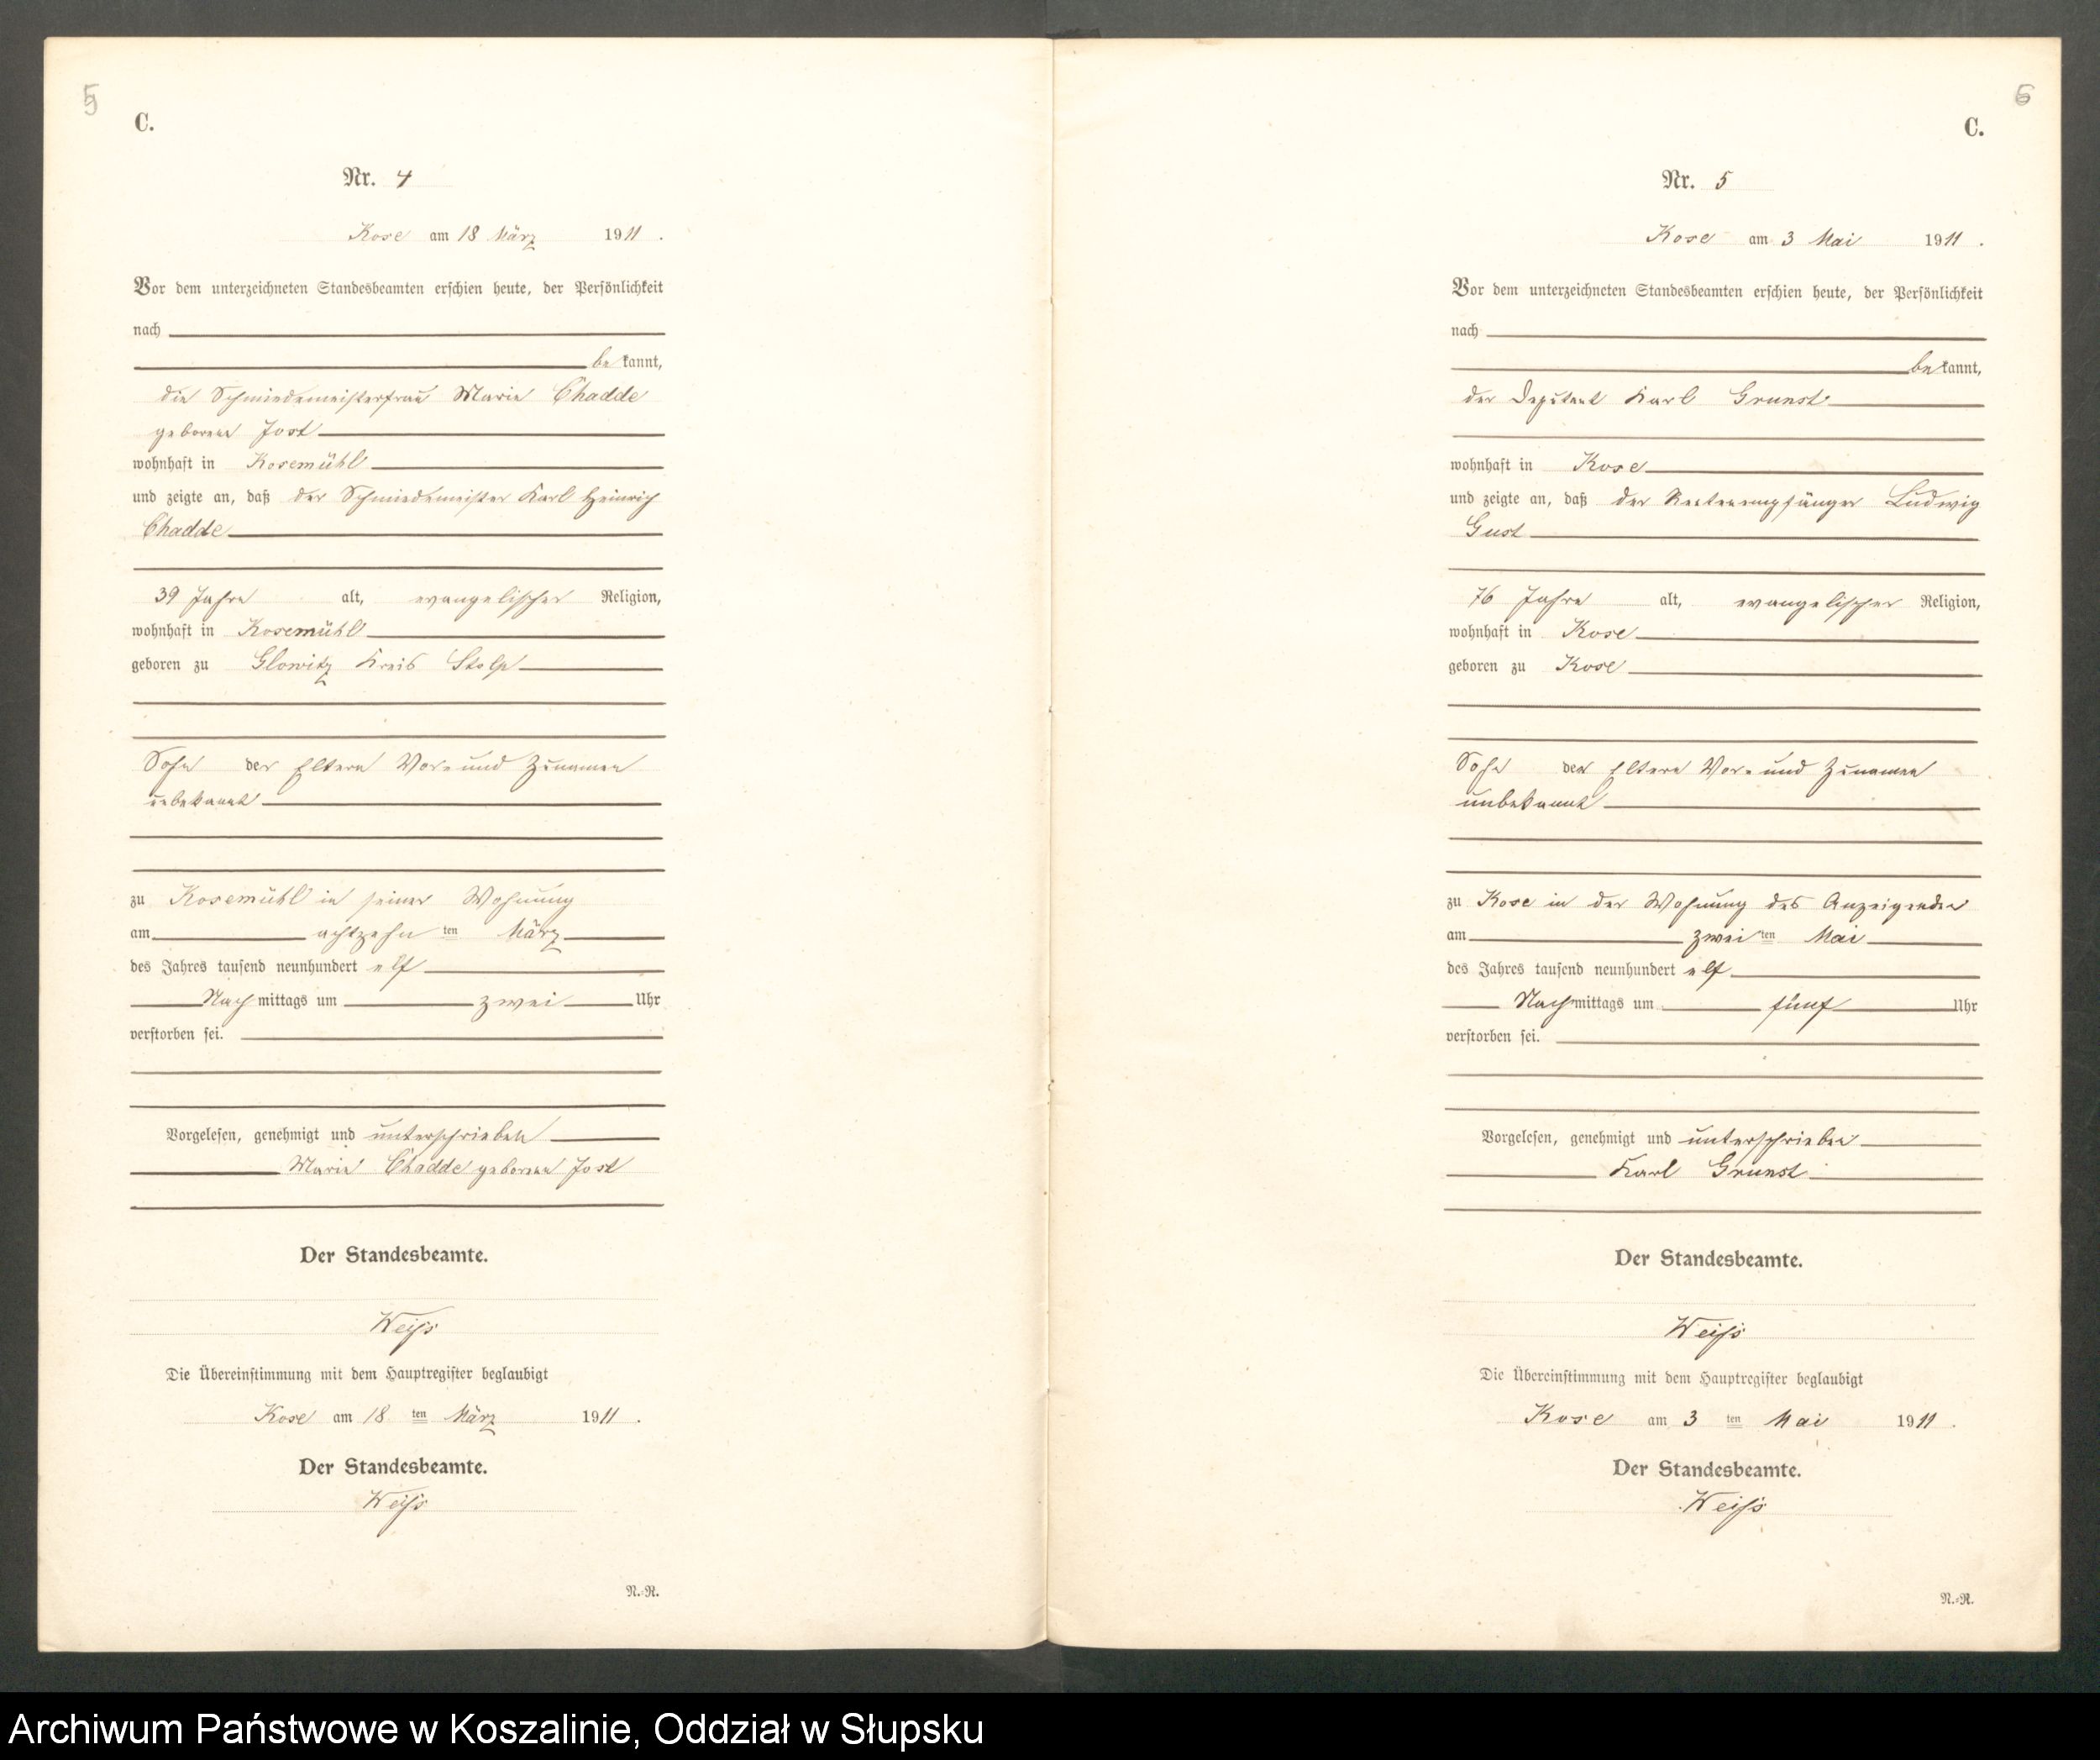 5
C.
Nr. 4
Kose am 18 März 1911.
Vor dem unterzeichneten Standesbeamten erschien heute, der Persönlichkeit
nach
bekannt,
die Schmiedemeisterfrau Marie Chadde
geborene Jost
wohnhaft in Kosemühl
und zeigte an, daß der Schmiedemeister Karl Heinrich
Chadde
39 Jahre alt, evangelischer Religion,
wohnhaft in Kosemühl
geboren zu Glowitz Kreis Stolp
Sohn der Eltern Vor- und Zunamen
unbekannt
zu Kosemühl in seiner Wohnung
am achtzehnten März
des Jahres tausend neunhundert elf
Nachmittags um zwei Uhr
verstorben sei.
Vorgelesen, genehmigt und unterschrieben
Marie Chadde geborene Jost
Der Standesbeamte.
Weiß
Die Übereinstimmung mit dem Hauptregister beglaubigt
Kose am 18ten März 1911.
Der Standesbeamte.
Weiß
N.-R.
6
C.
Nr. 5
Kose am 3 Mai 1911.
Vor dem unterzeichneten Standesbeamten erschien heute, der Persönlichkeit
nach
bekannt,
der Deputant Karl Grunst
wohnhaft in Kose
und zeigte an, daß der Rentenempfänger Ludwig
Gust
76 Jahre alt, evangelischer Religion,
wohnhaft in Kose
geboren zu Kose
Sohn der Eltern Vor- und Zunamen
unbekannt
zu Kose in der Wohnung des Anzeigenden
am zweiten Mai
des Jahres tausend neunhundert elf
Nachmittags um fünf Uhr
verstorben sei.
Vorgelesen, genehmigt und unterschrieben
Karl Grunst
Der Standesbeamte.
Weiß
Die Übereinstimmung mit dem Hauptregister beglaubigt
Kose am 3ten Mai 1911.
Der Standesbeamte.
Weiß
N.-R.
Archiwum Państwowe w Koszalinie, Oddział w Słupsku